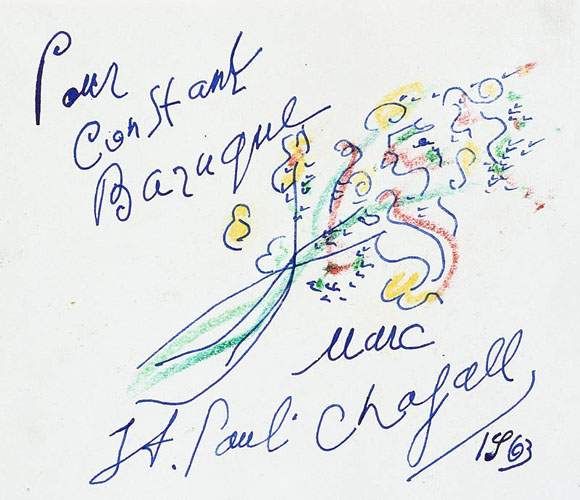 Pour
Constant
Baruque
Marc
St. Paul Chagall
1963